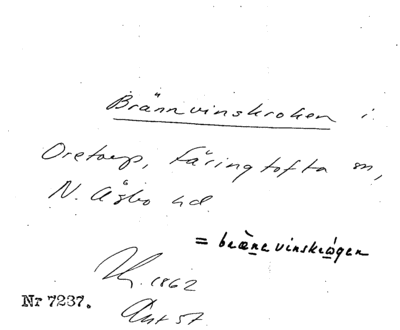 Brännvinskroken i
Oretorp, Färingtofta sn,
N. Åsbo hd.
= bräne vinskrågen
1862
Nr 7237.
Ant 57